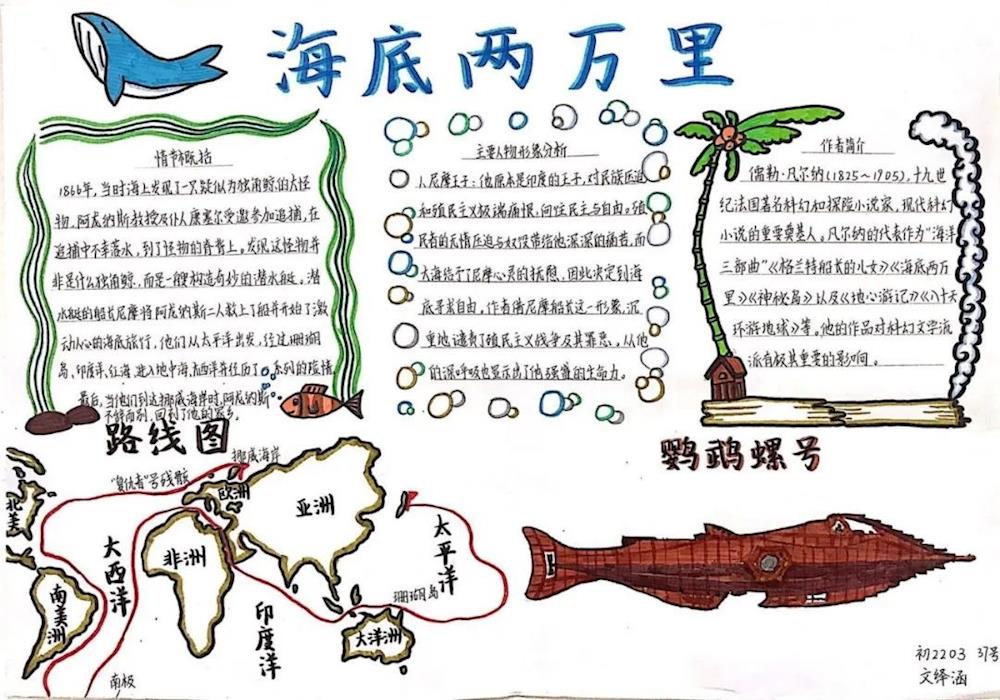 海底两万里
情节概括
1866年，当时海上发现了一只疑似为独角鲸的大怪
物，阿龙纳斯教授及仆人康塞尔受邀参加追捕，在
追捕中不幸落水，到了怪物的脊背上。发现这怪物并
非是什么独角鲸，而是一艘构造奇妙的潜水艇。潜
水艇的船长尼摩将阿龙纳斯一人救上了船并开始了激
动人心的海底旅行，他们从太平洋出发，经过珊瑚
岛、印度洋、红海、进入地中海、大西洋并经历了一系列的险情
最后，当他们到达挪威海岸时，阿龙纳斯
不辞而别，回到了他的家乡。
主要人物形象分析
人尼摩王子：他原本是印度的王子，对民族压迫
和殖民主义极端痛恨，向往民主与自由。殖
民者的无情压迫与奴役带给他深深的痛苦，而
大海给予了尼摩心灵的抚慰，因此决定到海
底寻找自由，作者肃尼摩船长这一形象，沉
重地谴责了殖民主义战争及其罪恶，从他
的深呼吸也显示出了他强劲的生命力。
作者简介
儒勒·凡尔纳(1825～1905)，十九世
纪法国著名科幻和探险小说家，现代科幻
小说的重要奠基人。凡尔纳的代表作为“海洋
三部曲”《格兰特船长的儿女》《海底两万
里》《神秘岛》以及《地心游记》《八十天
环游地球》等，他的作品对科幻文学流
派有极其重要的影响。
路线图
挪威海岸
“复仇者”号残骸
北美
欧洲
亚洲
太平洋
大西洋
非洲
南美洲
珊瑚岛
印度洋
大洋洲
南极
鹦鹉螺号
初2203 37号
文绎涵